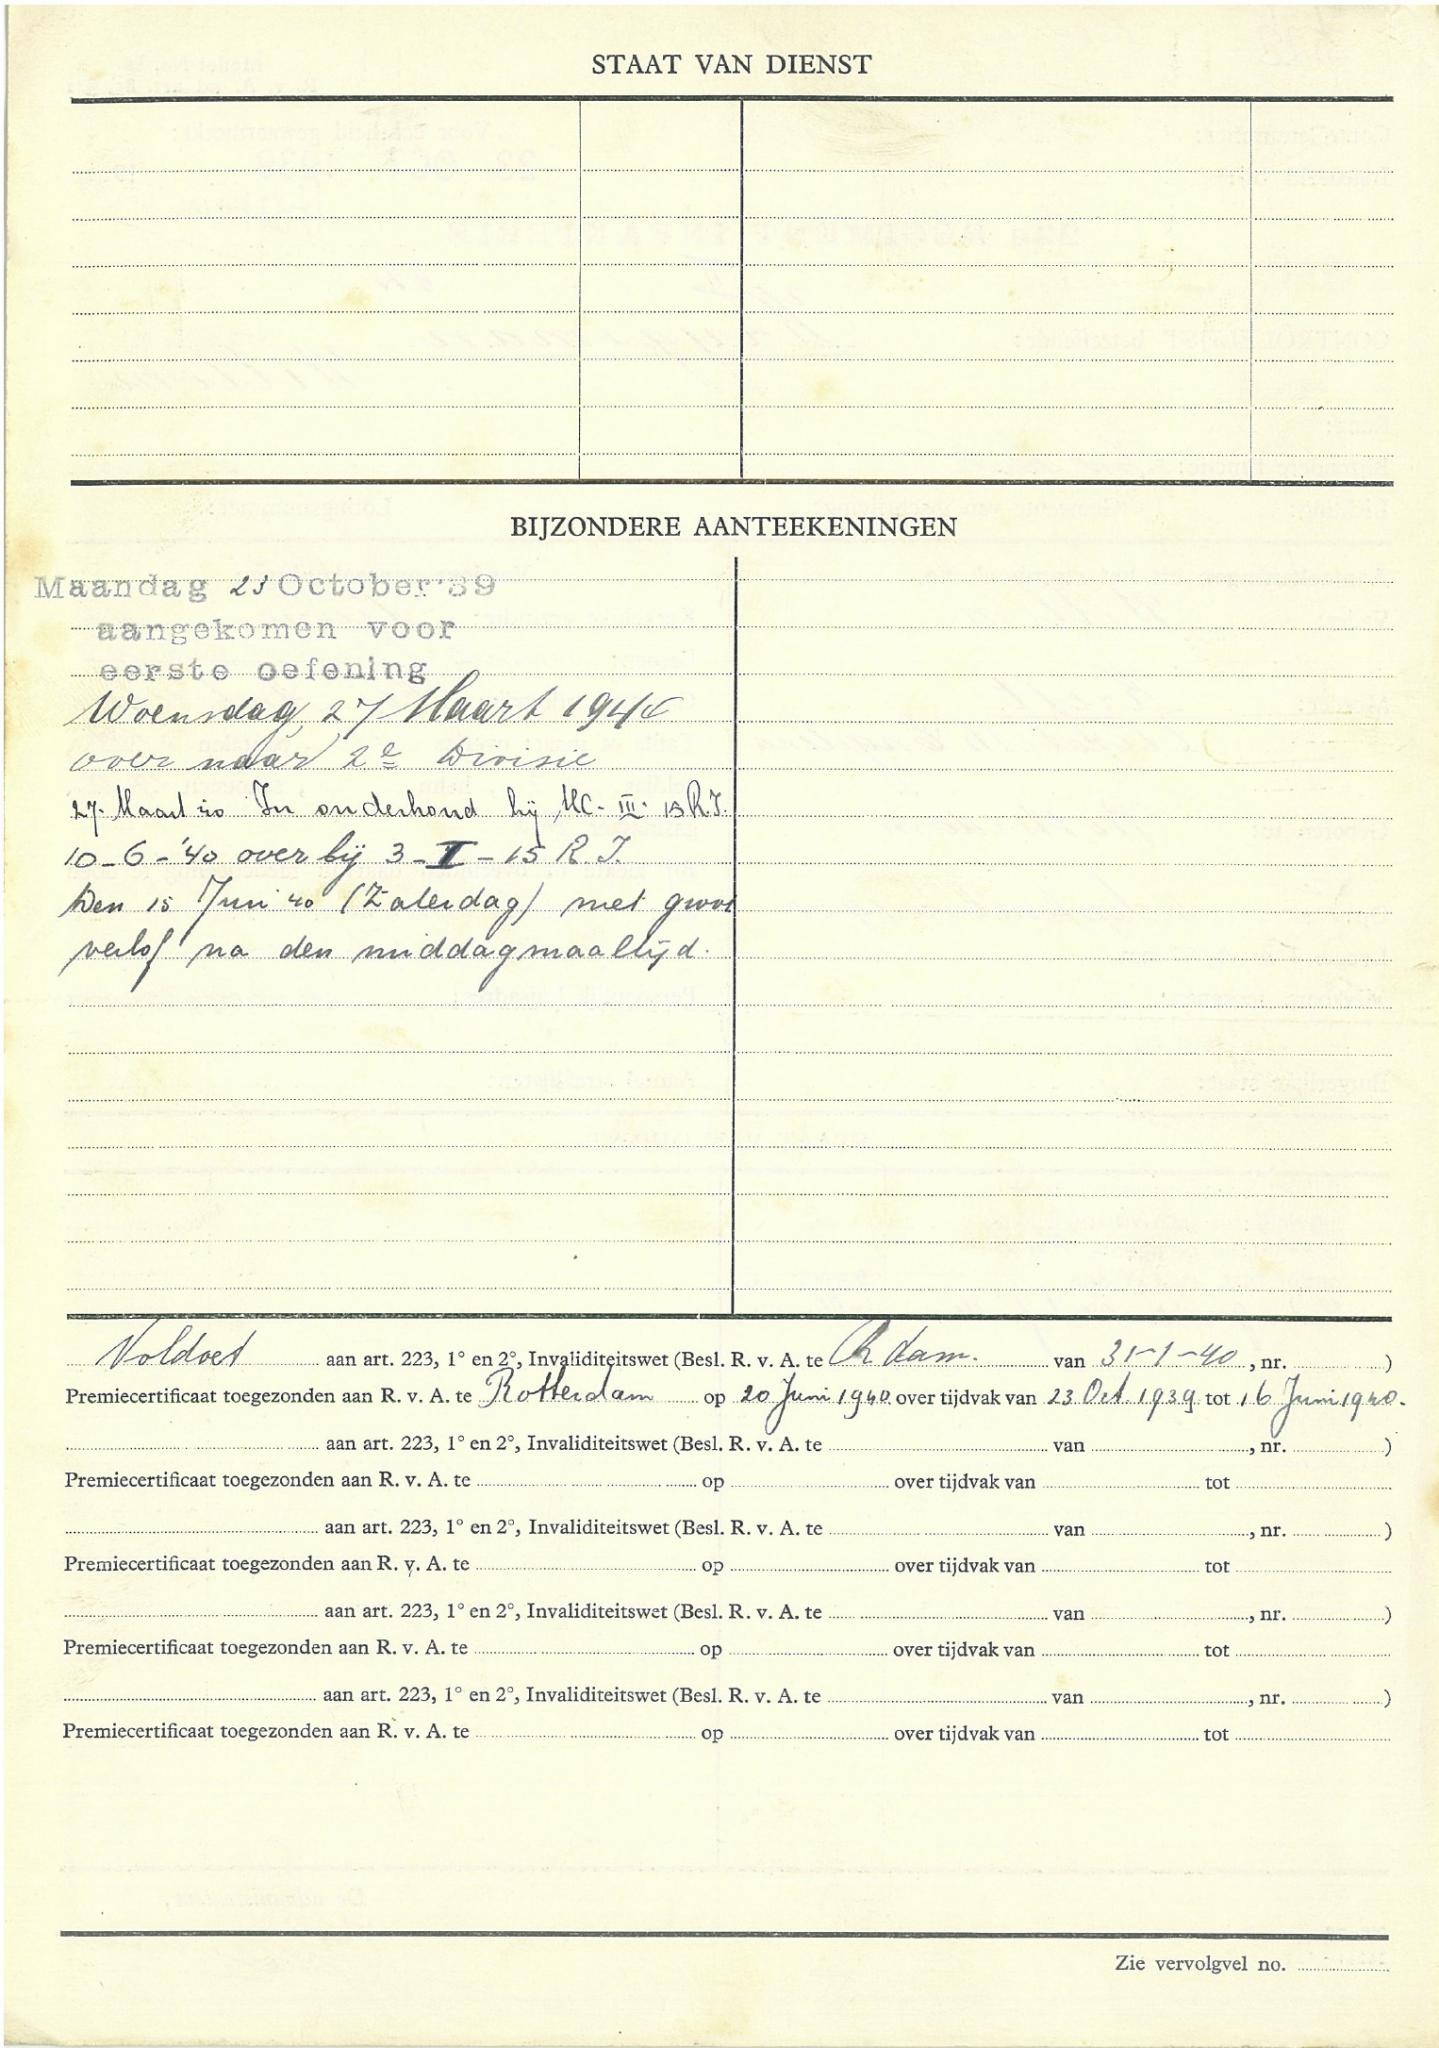 STAAT VAN DIENST
BIJZONDERE AANTEEKENINGEN
Maandag 23 October '39
aangekomen voor
eerste oefening
Woensdag 27 Maart 1940
over naar 2e Divisie
27 Maart 40 In onderhoud bij MC-III-15 R.I.
10-6-'40 over bij 3-I-15 R.I.
Den 15 Juni '40 (Zaterdag) met groot
verlof na den middagmaaltijd.
Voldoet aan art. 223, 1° en 2°, Invaliditeitswet (Besl. R. v. A. te R'dam. van 31-1-40, nr. )
Premiecertificaat toegezonden aan R. v. A. te Rotterdam op 20 Juni 1940 over tijdvak van 23 Oct. 1939 tot 16 Juni 1940.
aan art. 223, 1° en 2°, Invaliditeitswet (Besl. R. v. A. te van , nr. )
Premiecertificaat toegezonden aan R. v. A. te op over tijdvak van tot
aan art. 223, 1° en 2°, Invaliditeitswet (Besl. R. v. A. te van , nr. )
Premiecertificaat toegezonden aan R. v. A. te op over tijdvak van tot
aan art. 223, 1° en 2°, Invaliditeitswet (Besl. R. v. A. te van , nr. )
Premiecertificaat toegezonden aan R. v. A. te op over tijdvak van tot
aan art. 223, 1° en 2°, Invaliditeitswet (Besl. R. v. A. te van , nr. )
Premiecertificaat toegezonden aan R. v. A. te op over tijdvak van tot
Zie vervolgvel no.